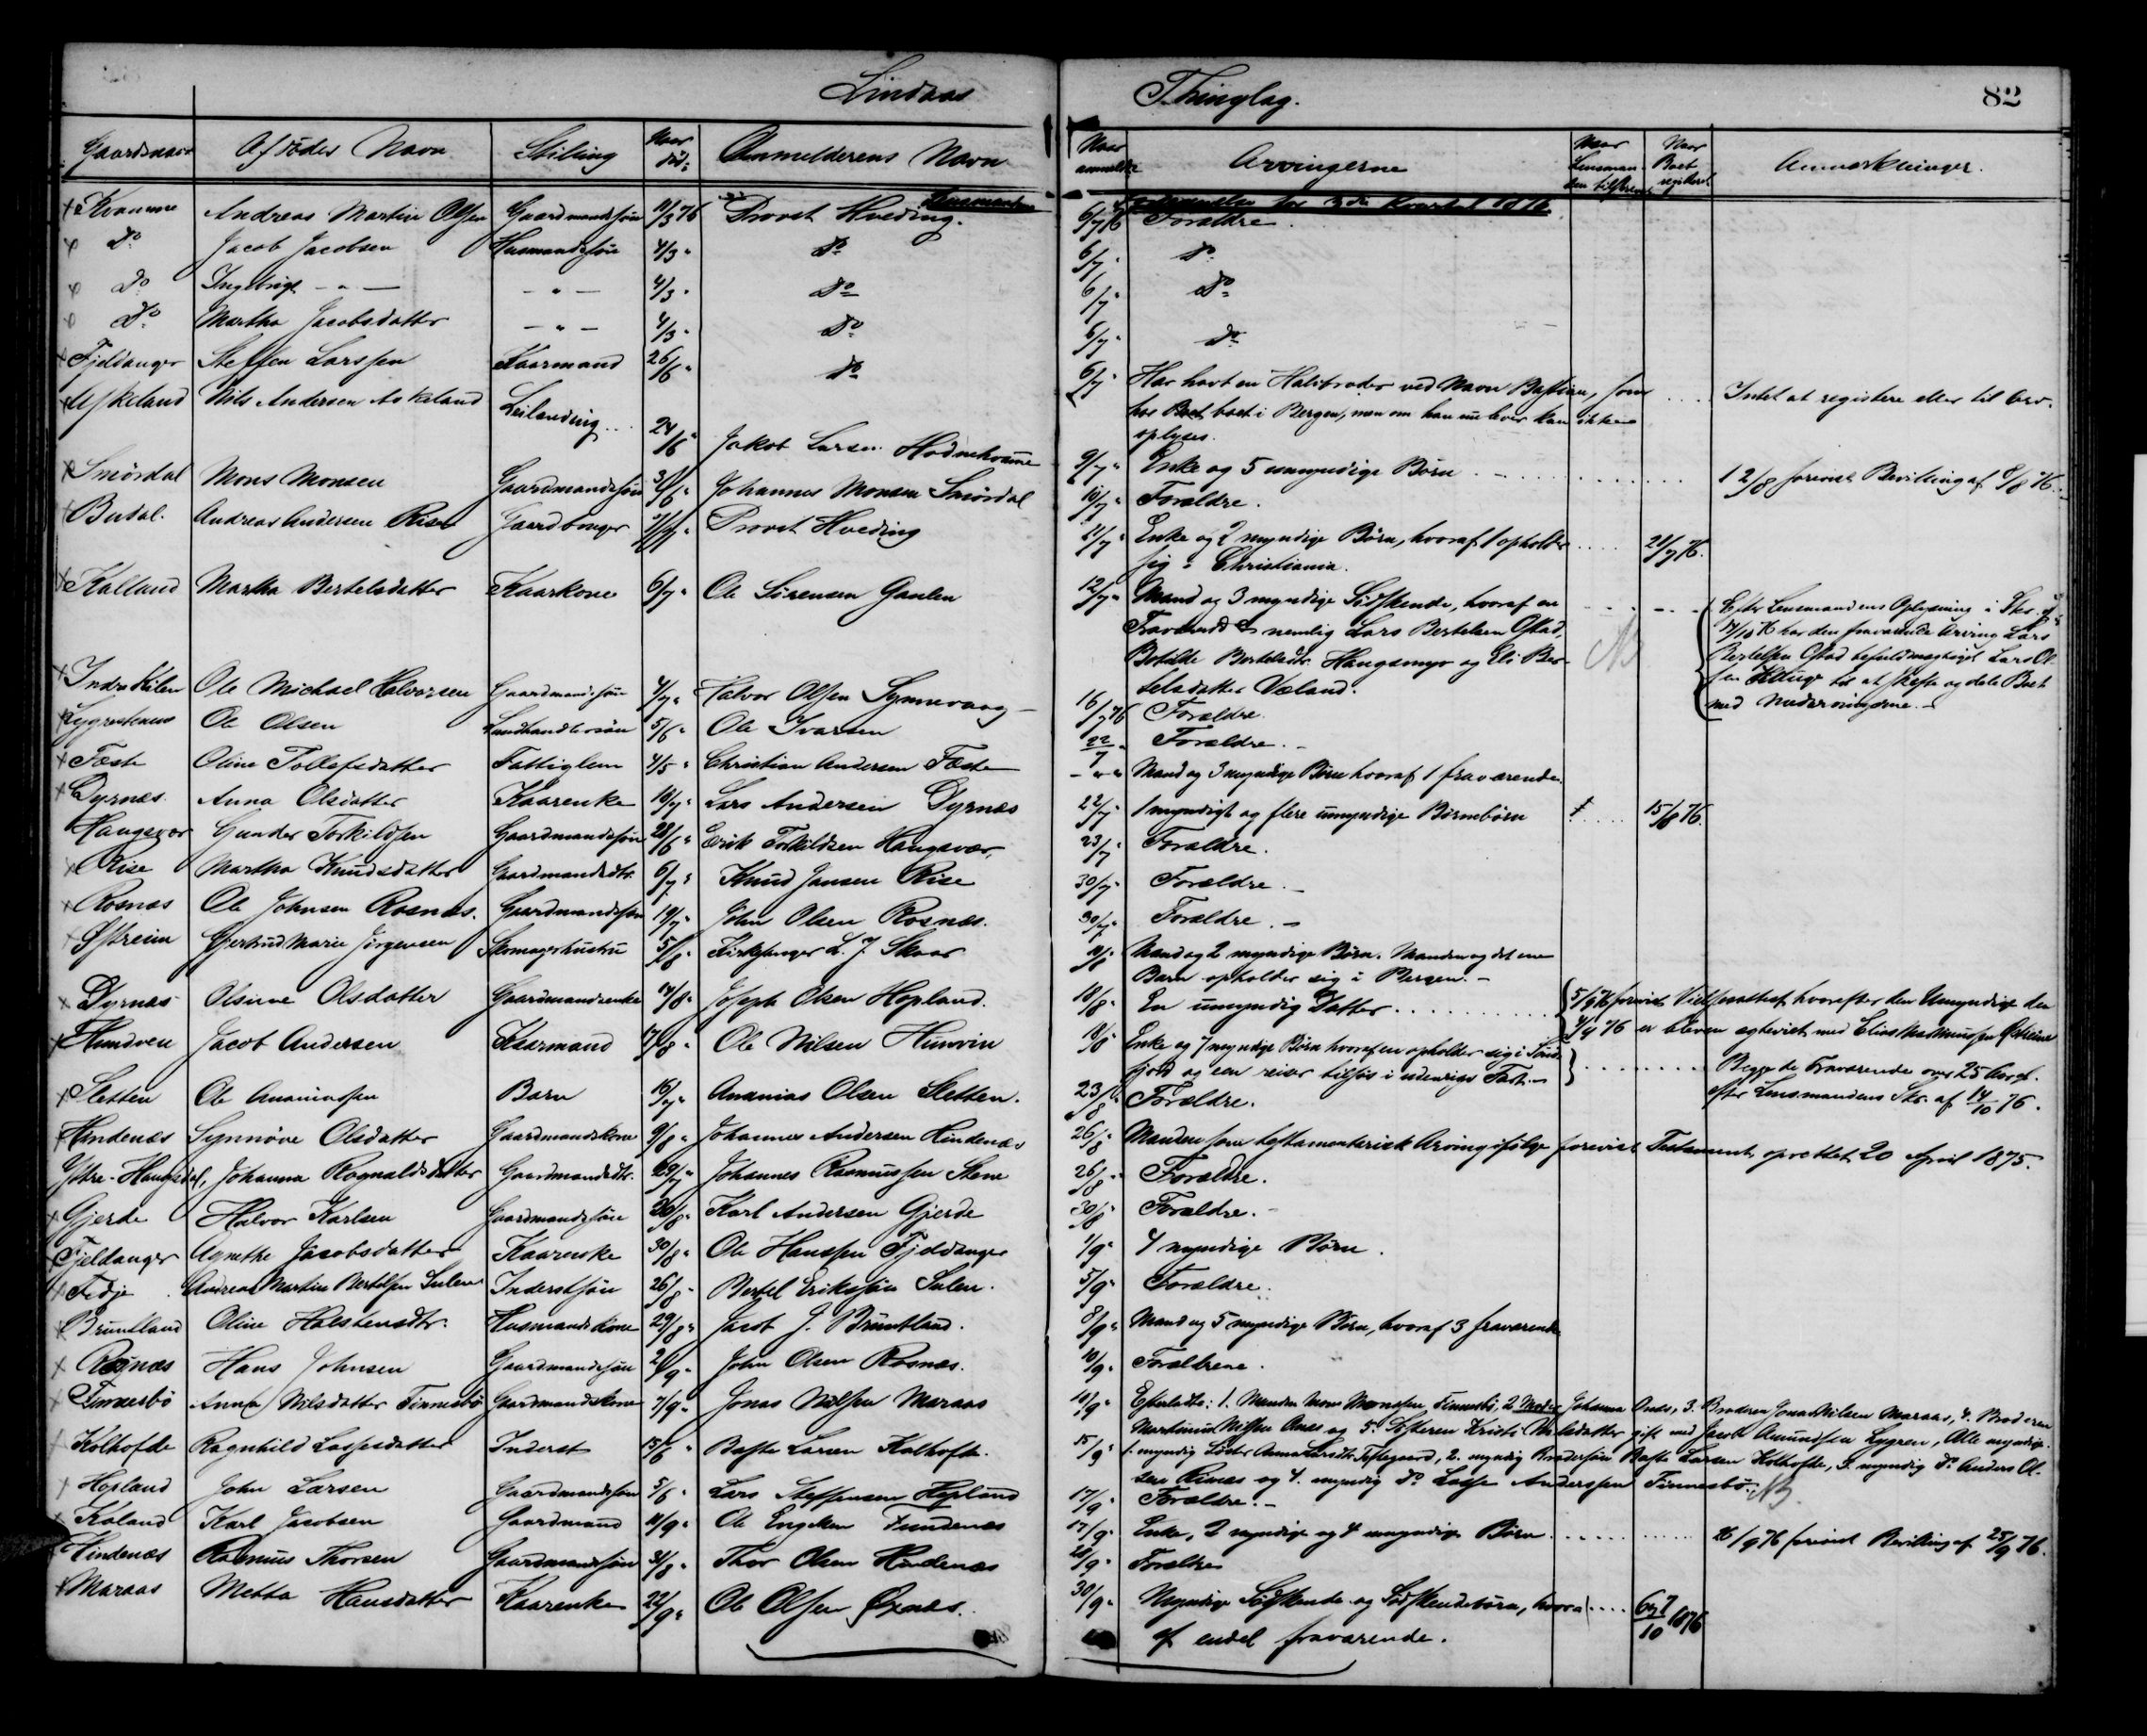 Lindaas Thinglag. 82
Gaardsnavn Afdødes Navn Stilling Naar død: Anmelderens Navn Naar anmeldt Arvingerne Naar Lensmanden tilskrevet Naar Boet registeret Anmærkninger.
Kvamme Andreas Martin Olsen Gaardmandssøn 11/3 76 Provst Hveding. 6/7 76 Forældre.
Do Jacob Jacobsen Husmandssøn 4/3 " Do 6/7 " Do
Do Ingebrigt — " — — " — 4/3 " Do 6/7 " Do
Do Martha Jacobsdatter — " — 4/3 " Do 6/7 " Do
Fjeldanger Steffen Larssen Kaarmand 26/6 " Do 6/7 " Har havt en Halvbroder ved Navn Bastian, som .... Intet at registere eller til Arv.
har boet i Bergen, men om han nu lever kan ikke
oplyses.
Askeland Nils Andersen Askeland Leilending .. 24/6 " Jakob Larsen Hodnekvamme 9/7 " Enke og 5 umyndige Børn ........ 12/8 forevist Bevilling af 8/8 76.
Smørdal Mons Monsen Gaardmandssøn 3/6 " Johannes Monsen Smørdal 10/7 " Forældre.
Busdal. Andreas Andersen Risa Gaardbruger 7/7 " Provst Hveding 11/7 " Enke og 2 myndige Børn, hvoraf 1 opholder .... 21/7 76.
sig i Christiania.
Kalland Martha Bertelsdatter Kaarkone 6/7 " Ole Sørensen Gaulen 12/7 " Mand og 3 myndige Sødskende, hvoraf en
Fraværende nemlig Lars Bertelsen Gstad,
Botilde Bertelsdtr. Haugsmyr og Eli Ber-
telsdatter Væland.
Efter Lensmandens Oplysning i Skr. af
14/10 76 har den fraværende Arving Lars
Bertelsen Gstad befuldmægtiget Lars Ol-
sen til at skifte og dele Boet
med Medarvingerne. —
NB
Indre Kilen Ole Michael Halvorsen Gaardmandssøn 4/7 " Halvor Olsen Synnevaag — 16/7 76 Forældre.
Ole Olsen Landhandlersøn 5/6 " Ole Ivarsen 22/7 " Forældre. —
Foste Oline Tollefsdatter Fattiglem 4/5 " Christian Andersen Foste — " — Mand og 3 myndige Børn hvoraf 1 fraværende.
Dyrnæs. Anna Olsdatter Kaarenke 19/7 " Lars Andersen Dyrnæs 22/7 " 1 myndigt og flere umyndige Børnebørn .... 15/8 76.
Haugsvær Gunder Torkildsen Gaardmandssøn 28/6 " Erik Torkildsen Haugsvær, 23/7 " Forældre.
Rise Martha Knudsdatter Gaardmandsdtr. 6/7 " Knud Jansen Rise 30/7 " Forældre. —
Rosnæs Ole Johnsen Rosnæs. Gaardmandssøn 19/7 " John Olsen Rosnæs. 30/7 " Forældre. —
Østreim Gjertrud Marie Jørgensen Skomagerhustru 5/8 " Kirkesanger L. J. Skaar 11/8 " Mand og 2 myndige Børn. Manden og det ene
Barn opholder sig i Bergen. —
Dyrnæs Olsine Olsdatter Gaardmandsenke 14/8 " Joseph Olsen Hopland. 18/8 " En umyndig Datter ........ 5/9 76 forevist Vielsesattest hvorefter den Umyndige den
4/4 76 er bleven ægteviet med Elias Rasmussen Østreim
Hundven Jacob Andersen Kaarmand 7/8 " Ole Nilsen Hunvin 18/8 " Enke og 7 myndige Børn hvoraf en opholder sig i Sønd-
fjord og een reiser tilsøs i udenrigs Fart. — ........ Begge de Fraværende over 25 Aar gl.
efter Lensmandens Skr. af 14/10 76.
Sletten Ole Ananiassen Barn 16/7 " Ananias Olsen Sletten. 23/8 " Forældre.
Hindenæs Synnøve Olsdatter Gaardmandskone 9/8 " Johannes Andersen Hindenæs 26/8 " Manden som testamentarisk Arving ifølge forevist Testament oprettet 20 April 1875.
Ytre-Haugsdal, Johanna Rognaldsdatter Gaardmandsdtr. 29/7 " Johannes Rasmussen Stene 26/8 " Forældre.
Gjerde Halvor Karlsen Gaardmandssøn 20/8 " Karl Andersen Gjerde 30/8 " Forældre. —
Fjeldanger Agnethe Jacobsdatter Kaarenke 30/8 " Ole Hanssen Fjeldanger 1/9 " 4 myndige Børn.
Fedje Andreas Martin Bertelsen Sulen Inderstsøn 26/8 " Bertel Eriksøn Sulen. 5/9 " Forældre.
Bruntland Oline Halstensdtr. Husmandskone 29/8 " Jacob J. Bruntland. 8/9 " Mand og 5 myndige Børn, hvoraf 3 fraværende
Rosnæs Hans Johnsen Gaardmandssøn 2/9 " John Olsen Rosnæs. 10/9 " Forældrene.
Finnesbø Anna Nilsdatter Finnesbø Gaardmandskone 7/9 " Jonas Nilsen Maraas 10/9 " Efterladte: 1. Manden Mons Monssen Finnesbø, 2 Moder Johanna Ones, 3. Broderen Jonas Nilsen Maraas, 4. Broderen
Martinus Nilsen Ones og 5. Søsteren Kristi Nilsdatter gift med Jacob Amundsen Lygren, Alle myndige.
Kolhofde Ragnhild Lassesdatter Inderst 15/6 " Baste Larsen Kolhofde. 15/9 " 1. myndig Søster Anna Toftegaard, 2. myndig Brodersøn Baste Larsen Kolhofde, 3. myndig do Anders Ol-
sen Rinæs og 4. myndig do Lasse Anderssen Finnesbø. NB.
Hopland John Larsen Gaardmandssøn 5/6 " Lars Steffensen Hopland 17/9 " Forældre. —
Kaland Karl Jacobsen Gaardmand 11/9 " Ole Engelsen Fundenæs 17/9 " Enke, 2 myndige og 4 umyndige Børn ........ 26/9 76 forevist Bevilling af 25/9 76.
Hindenæs Rasmus Thorsen Gaardmandssøn 31/8 " Thor Olsen Hindenæs 20/9 " Forældre
Maraas Metta Hansdatter Kaarenke 22/9 " Ole Olsen Oxnæs. 30/9 " Myndige Sødskende og Sødskendebørn, hvora .... 6 og 7/10 1876
af endel fraværende.